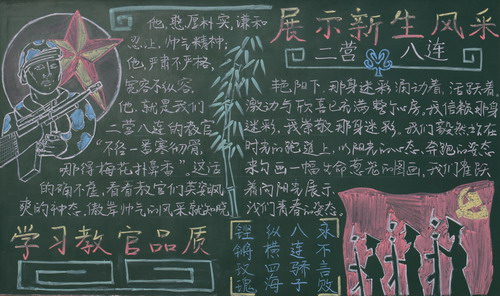 他，憨厚朴实，谦和
忍让，帅气精神；
他，严肃不严格，
宽容不纵容。
他，就是我们
二营八连的教官
"不经一番寒彻骨，
那得梅花扑鼻香"这话
的确不差，看看教官们英姿飒
爽的神态，傲岸帅气的风采就知晓
学习教官品质
展示新生风采
二营 八连
艳阳下，那身迷彩涌动着，活跃着，
激动与欣喜已充满整个心房，我信赖那身
迷彩，我崇敬那身迷彩。我们毅然站在
时光的跑道上，以阳光的心态，奔跑的姿态
来勾画一幅生命葱茏的图画，我们雀跃
着向阳光展示，
我们青春的姿态。
永不言败
八连骄子
纵横四海
铿锵玫瑰